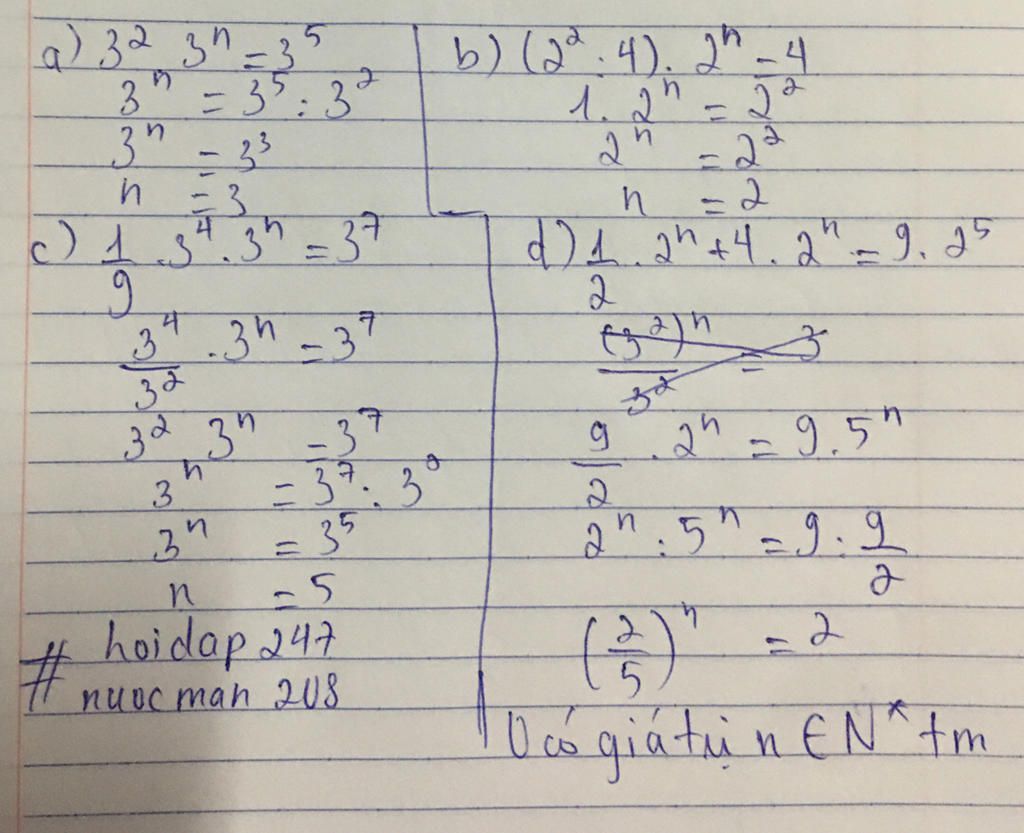 a) 3² 3ⁿ = 3⁵
3ⁿ = 3⁵ : 3²
3ⁿ = 3³
n = 3
b) (2² : 4) . 2ⁿ = 4
1 . 2ⁿ = 2²
2ⁿ = 2²
n = 2
c) 1/9 . 3⁴ . 3ⁿ = 3⁷
3⁴/3² . 3ⁿ = 3⁷
3² 3ⁿ = 3⁷
3ⁿ = 3⁷ : 3²
3ⁿ = 3⁵
n = 5
# hoidap 247
# nuocman 208
d) 1/2 . 2ⁿ + 4 . 2ⁿ = 9 . 2⁵
(3²)ⁿ/3² = 3
9/2 . 2ⁿ = 9 . 5ⁿ
2ⁿ : 5ⁿ = 9 : 9/2
(2/5)ⁿ = 2
0 có giá trị n ∈ N* tm